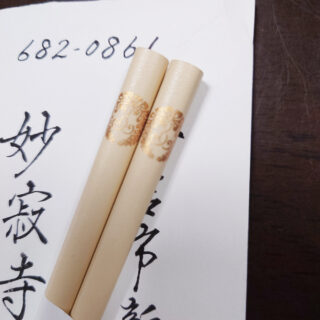 682-0861
市
妙寂寺